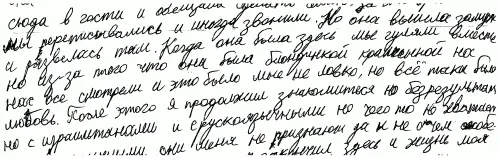 сюда в гости и обещала сделать
мы переписывались и иногда звонили. Но она вышла замуж
и развелась там. Когда она была здесь мы гуляли вместе
но из-за того что она была блондинкой крашенной на
нас все смотрели и это было мне не ловко, но всё таки была
любовь. После этого я продолжил знакомиться но безрезультатно
но с израилтянами и с русскоязычными не чего то не хватает
они меня не признают да и не о чем
здесь и жизнь моя